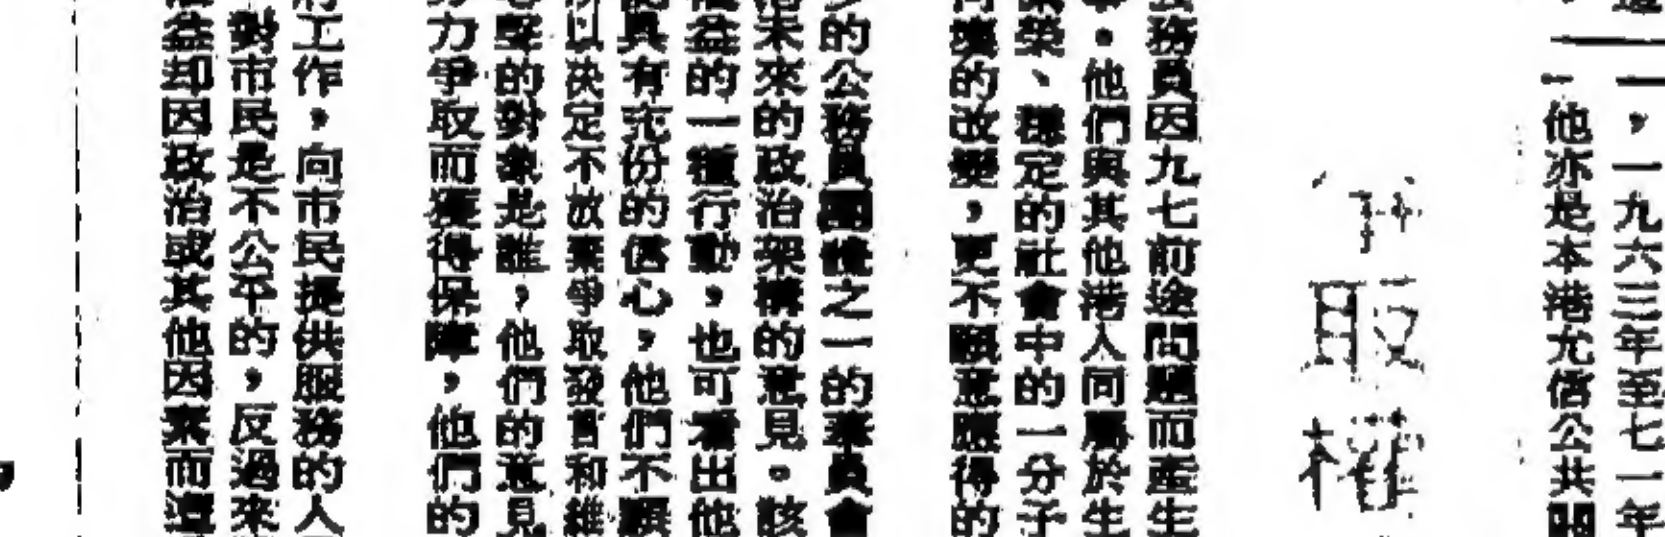 一，一九六三年至七一年
他亦是本港尤德公共開
務員因九七前途問題而產生
。他們與其他港人同屬於生
榮、穩定的社會中的一分子
境的改變，更不願意獲得的
的公務員團體之一的華員會
未來的政治架構的意見。該
益的一種行動，也可看出他
具有充份的信心，他們不願
以決定不放棄爭取發言和維
的對象是誰，他們的意見
力爭取而獲得保障，他們的
工作，向市民提供服務的人
對市民是不公平的，反過來
益却因政治或其他因素而遭